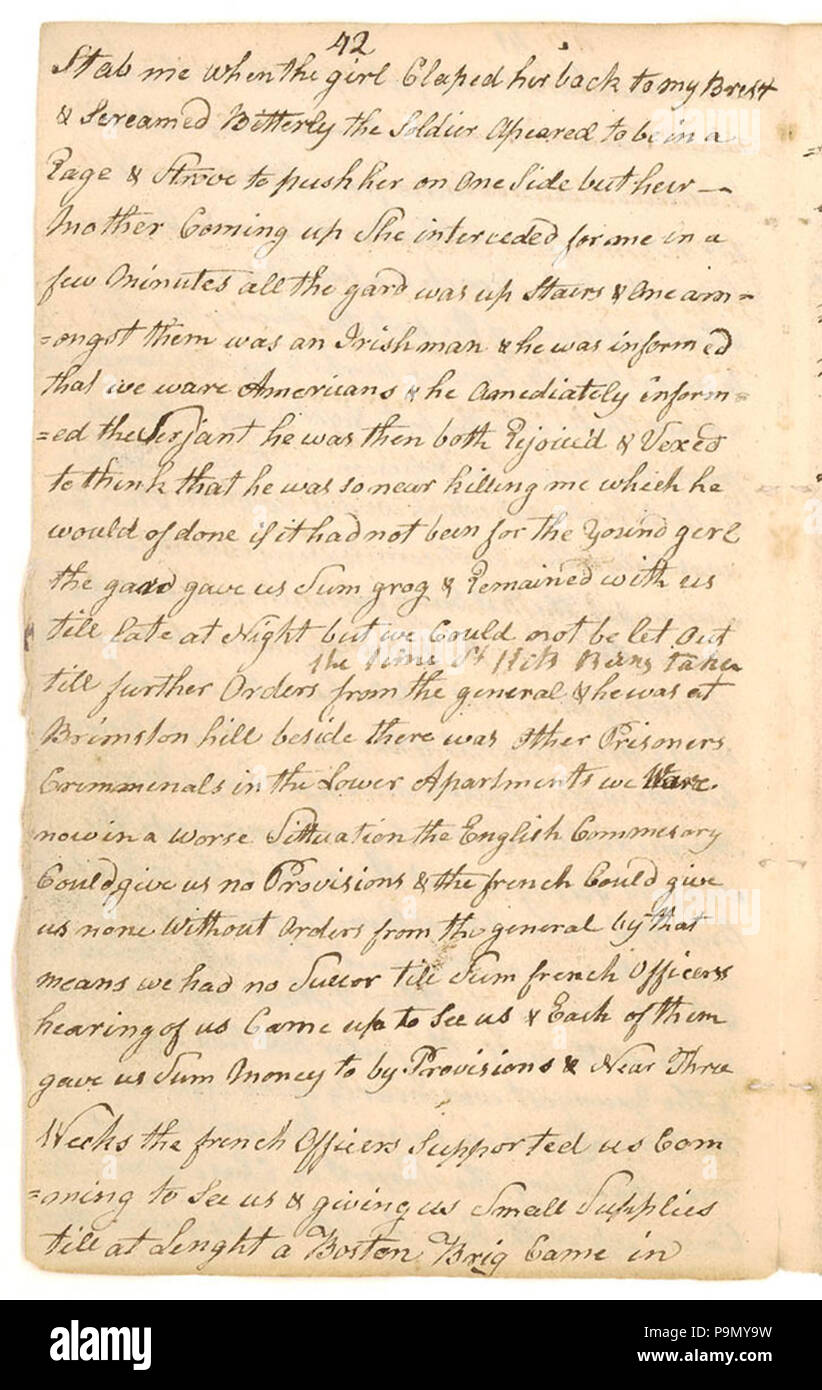 42
Stab me when the girl Claped her back to my Brest
& Screamed Bitterly the Soldier Apeared to be in a
Rage & Strove to push her on One Side but heir —
Mother Coming up She interceded for me in a
few Minutes all the gard was up Stairs & One am=
=ongst them was an Irishman & he was informed
that we ware Americans & he Amediately inform=
=ed the Serjant he was then both Rejoic'd & Vexed
to think that he was so near killing me which he
would of done if it had not been for the Yound gerl
the gard gave us Sum grog & Remained with us
till late at Night but we Could not be let Out
the time St Kits Being taken
till further Orders from the general & he was at
Brimston hill beside there was Other Prisoners
Cremmenals in the Lower Apartments we Ware.
now in a worse Sittuation the English Commesary
Could give us no Provisions & the french Could give
us none Without Orders from the general by that
means we had no Succor till Sum french Officers
hearing of us Came up to See us & Each of them
gave us Sum Money to by Provisions & Near Three
Weeks the french Officers Supported us Com
=ming to See us & giving us Small Supplies
till at Lenght a Boston Brig Came in
alamy
alamy
alamy
a
a
a
alamy
Image ID: P9MY9W
www.alamy.com